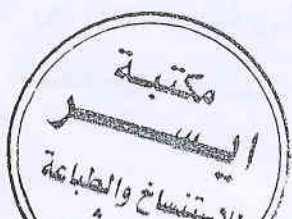 مكتبة
اليسر
للاستنساخ والطباعة